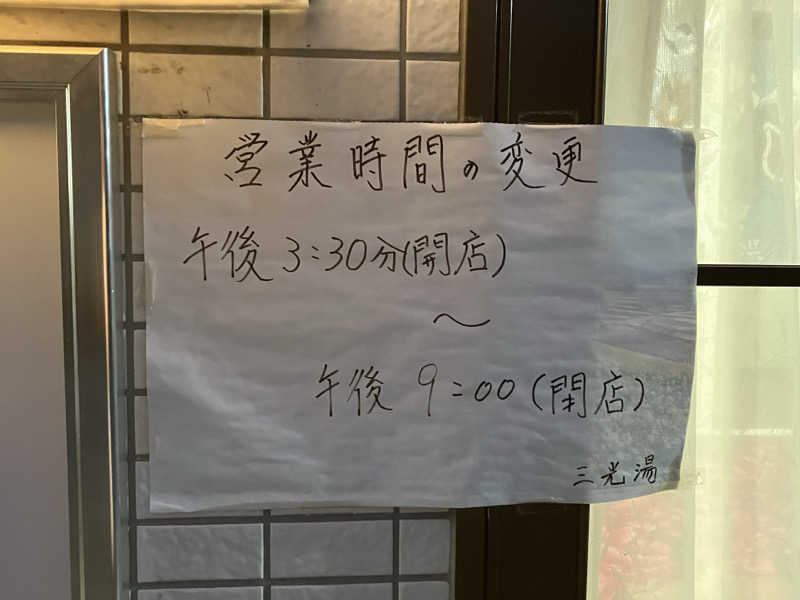 営業時間の変更
午後3:30分(開店)
〜
午後 9:00(閉店)
三光湯